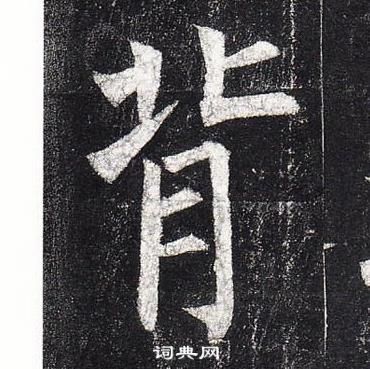 背
词典网